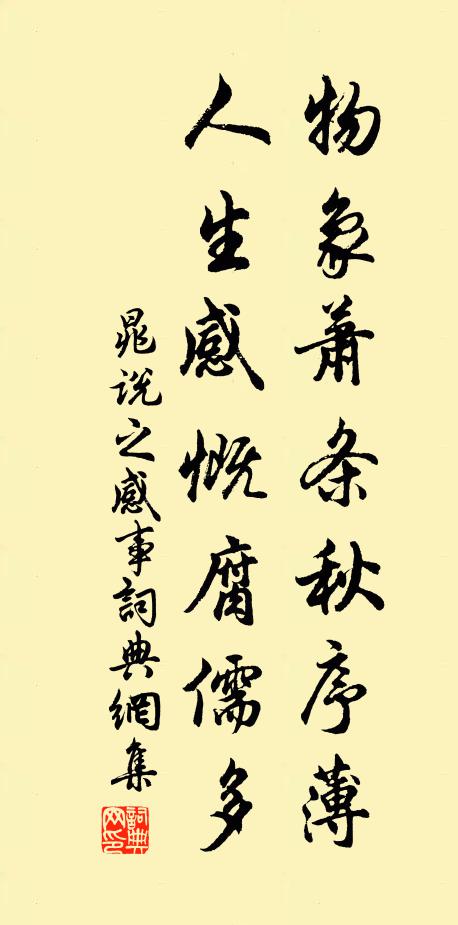 物象蕭条秋序薄
人生感慨腐儒多
晁說之感事詞典網集
詞典网印